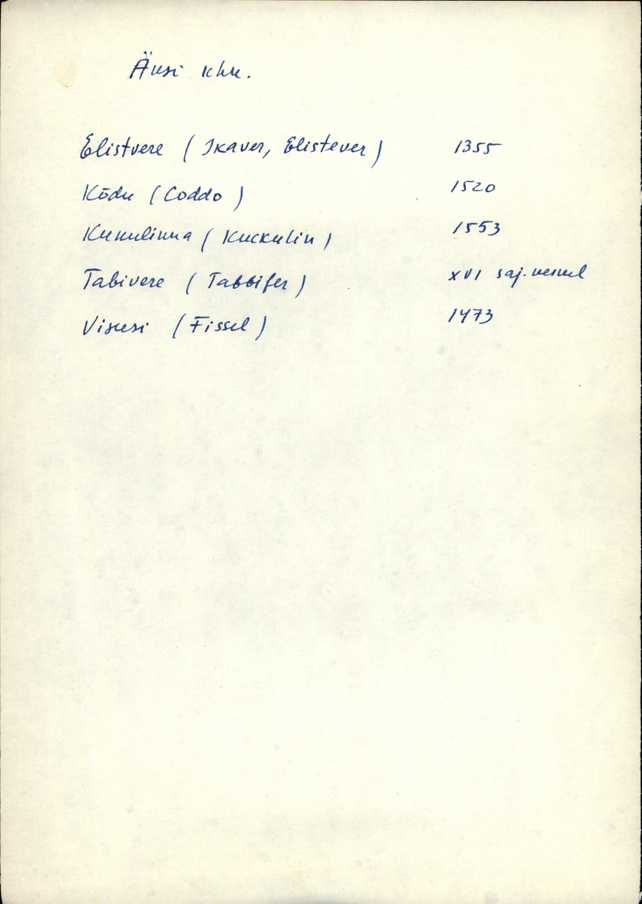 Äksi khk.
Elistvere (Ikaver, Elistever) 1355
Kõdu (Coddo) 1520
Kukulinna (Kuckulin) 1553
Tabivere (Tabbifer) XVI saj. keskel
Visusi (Fissel) 1473